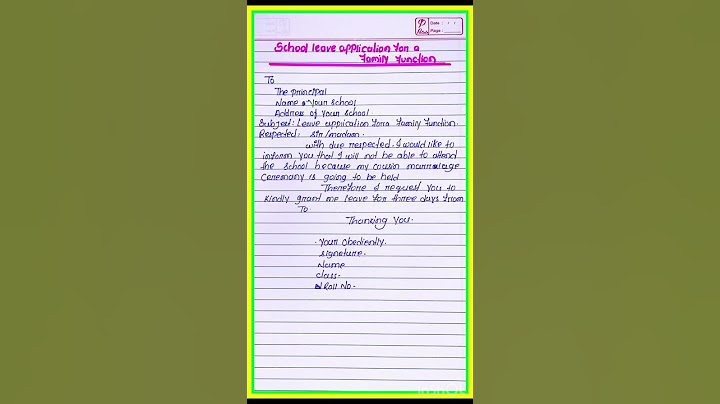 Date : / /
Page :
School leave application for a
Family Function
To
The principal
Name of Your School
Address of Your School
Subject: Leave application for a Family Function.
Respected, sir/madam.
with due respected. I would like to
inform you that I will not be able to attend
the school because my cousin marriage
Ceremony is going to be held
Therefore I request you to
kindly grant me leave for three days from
To
Thanking You.
. Your Obediently.
signature.
Name
Class.
Roll No.